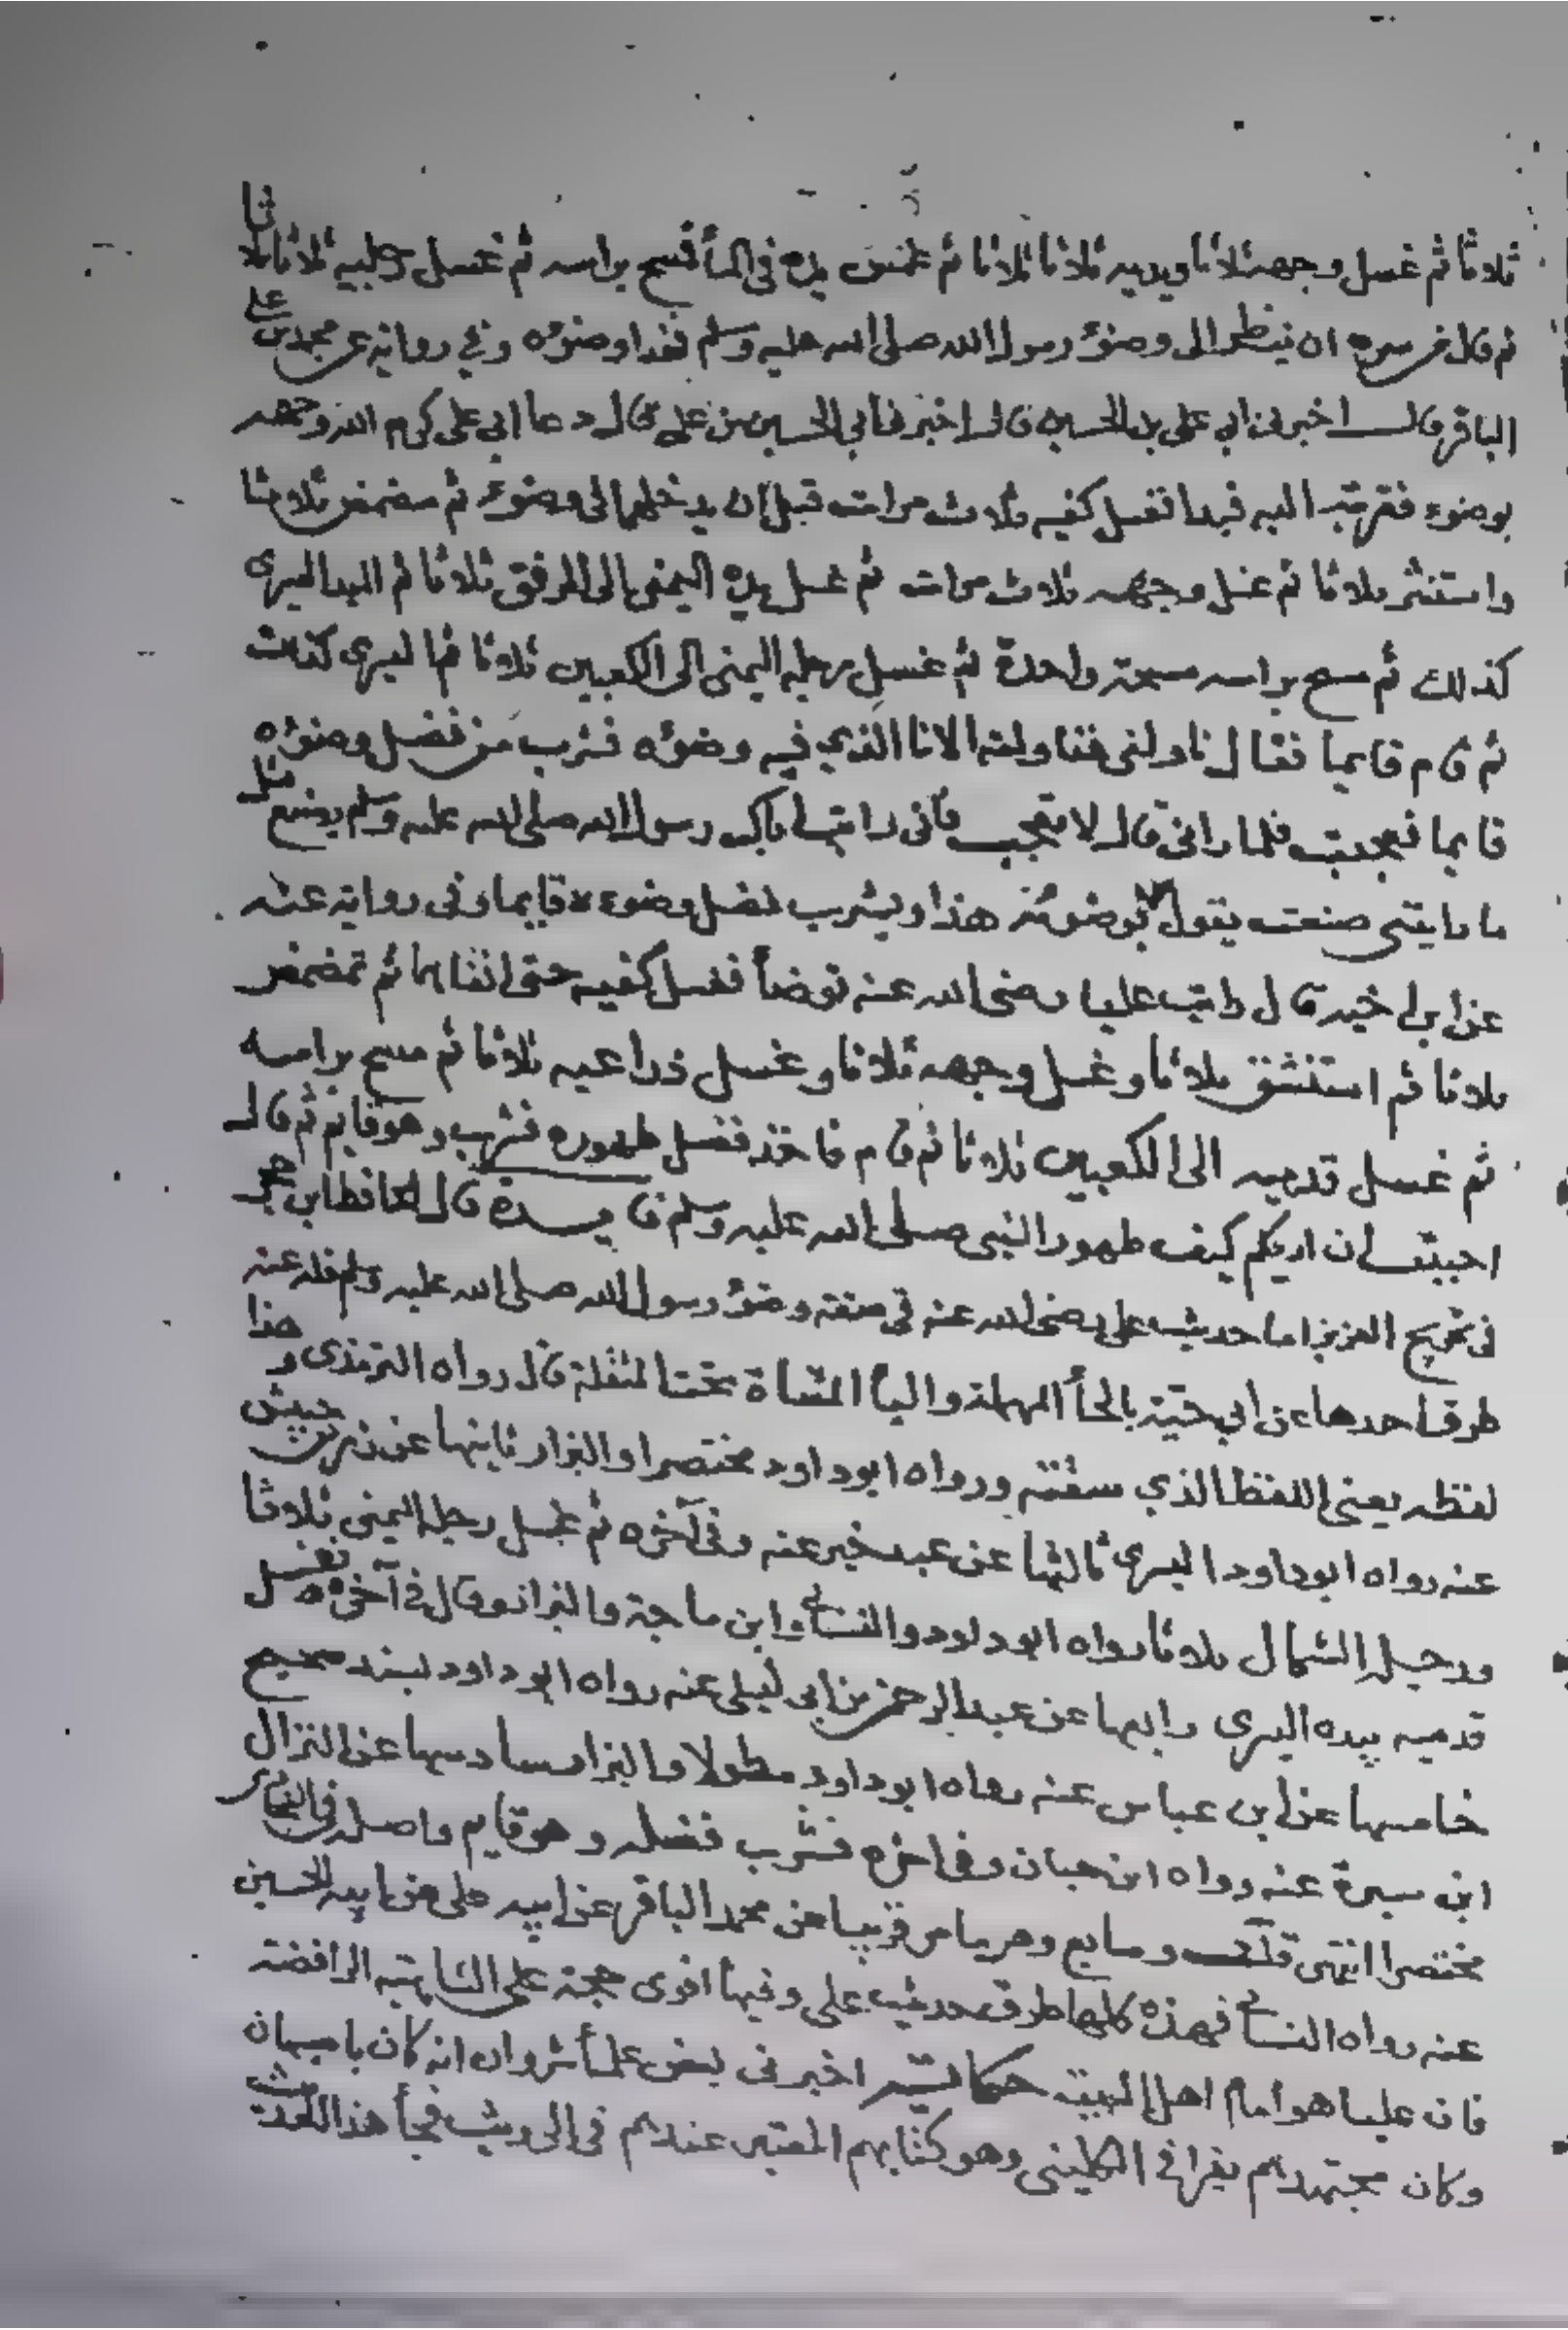 ثلاثا ثم غسل وجهه ثلاثا ويديه ثلاثا ثلاثا ثم غمس يده في المأ فمسح براسه ثم غسل رجليه ثلاثا ثلاثا
ثم قال من سره ان ينظر الى وضوء رسول الله صلى الله عليه وسلم فهذا وضوءه وفي رواية عن محمد بن علي
الباقر قال اخبرني ابي علي بن الحسين قال اخبرني ابي الحسين بن علي قال دعا ابي علي كرم الله وجهه
بوضوء فقربته اليه فبدا فغسل كفيه ثلاث مرات قبل ان يدخلهما الى وضوئه ثم مضمض ثلاثا
واستنثر ثلاثا ثم غسل وجهه ثلاث مرات ثم غسل يده اليمنى الى المرفق ثلاثا ثم اليد اليسرى
كذلك ثم مسح براسه مسحة واحدة ثم غسل رجله اليمنى الى الكعبين ثلاثا ثم اليسرى كذلك
ثم قام قايما فقال ناولني فناولته الانا الذي فيه وضوءه فشرب من فضل وضوءه
قايما فعجبت فلما راني قال لا تعجب فاني رايت اباك رسول الله صلى الله عليه وسلم يصنع مثل
ما رايتني صنعت يقول لوضوئه هذا ويشرب فضل وضوءه قايما وفي رواية عنه
عن ابي خير قال رايت عليا رضي الله عنه توضأ فغسل كفيه حتى انقاهما ثم تمضمض
ثلاثا ثم استنشق ثلاثا وغسل وجهه ثلاثا وغسل ذراعيه ثلاثا ثم مسح براسه
ثم غسل قدميه الى الكعبين ثلاثا ثم قام فاخذ فضل طهوره فشرب وهو قايم ثم قال
احببت ان اريكم كيف طهور النبي صلى الله عليه وسلم فايدة قال الحافظ ابن حجر
في تخريج العزيز اما حديث علي رضي الله عنه في صفة وضوء رسول الله صلى الله عليه وسلم فله عنه
طرق احدها عن ابي حية بالحأ المهملة واليأ المثناة تحت المثقلة قال رواه الترمذي وهذا
لفظه يعني اللفظ الذي سقته ورواه ابو داود مختصرا والبزار ثانيها عن زر بن حبيش
عنه رواه ابو داود اليسرى ثالثها عن عبد خير عنه وفي آخره ثم غسل رجله اليمنى ثلاثا
ورجله الشمال ثلاثا رواه ابو داود والنسائي وابن ماجة والبزار وقال في آخره فغسل
قدميه بيده اليسرى رابعها عن عبد الرحمن بن ابي ليلى عنه رواه ابو داود بسند صحيح
خامسها عن ابن عباس عنه رواه ابو داود مطولا والبزار سادسها عن النزال
ابن سبرة عنه رواه ابن حبان وفي اخره فشرب فضله وهو قايم واصله في البخاري
مختصرا انتهى قلت وسابع وهو ما مر قريبا عن محمد الباقر عن ابيه علي عن ابيه الحسين
عنه رواه النسائي فهذه كلها طرق حديث علي وفيها اقوى حجة على الرافضة
فان عليا هو امام اهل البيت حكاية اخبرني بعض علمأ شروان انه كان باصبهان
وكان مجتهدهم يقرا في الكليني وهو كتابهم المعتبر عندهم في فجأ هذا الحديث